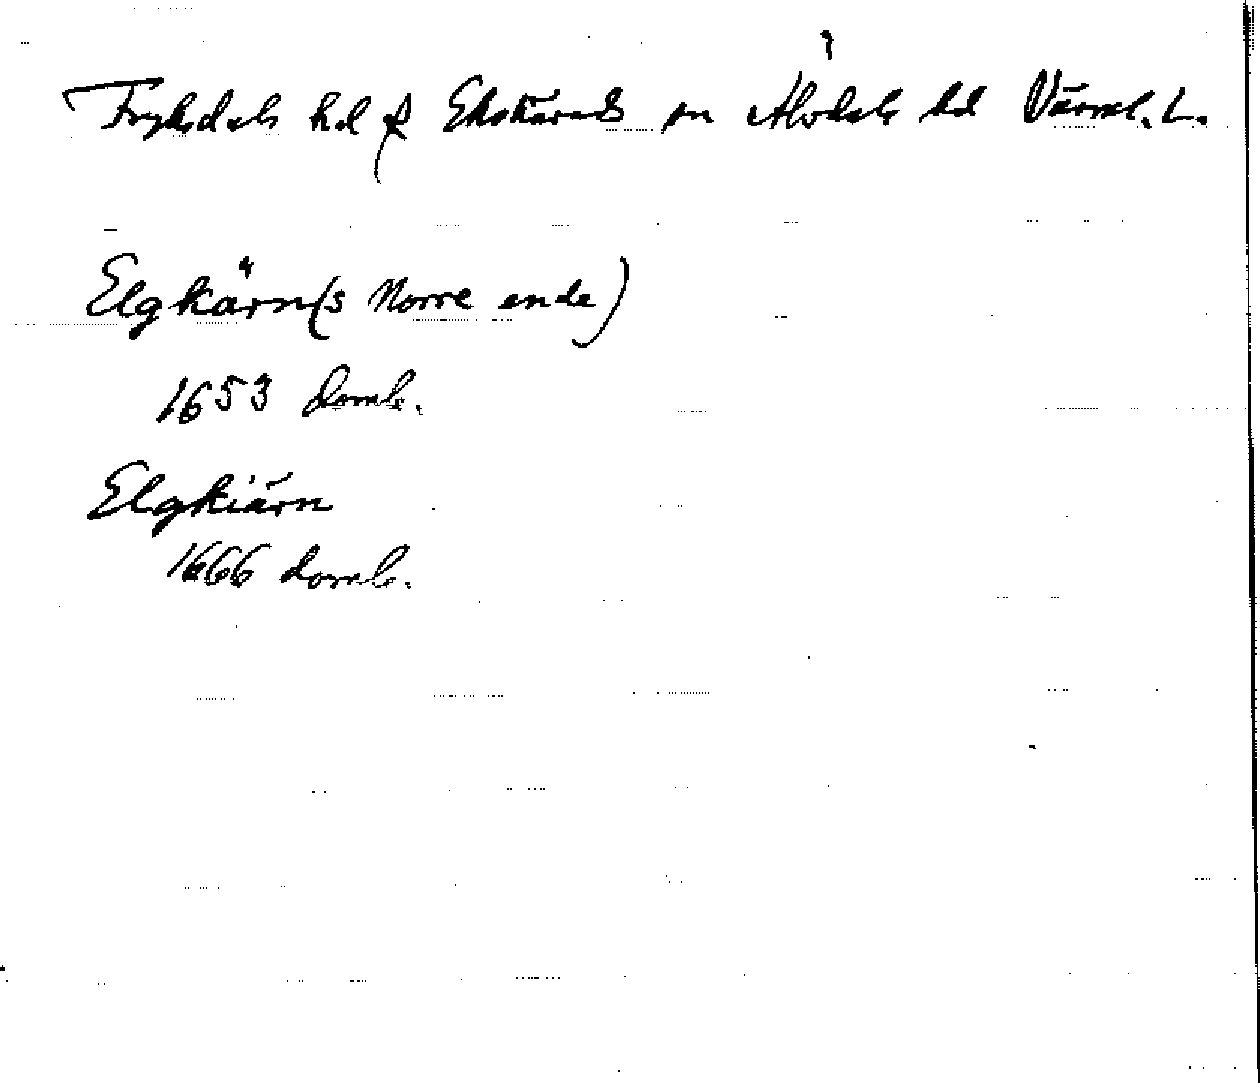 Fryksdals hd f Ekshärads sn Älvdals hd Värml. L.
Elgkärn(s Norre ende)
1653 domb.
Elgkiärn
1666 domb.